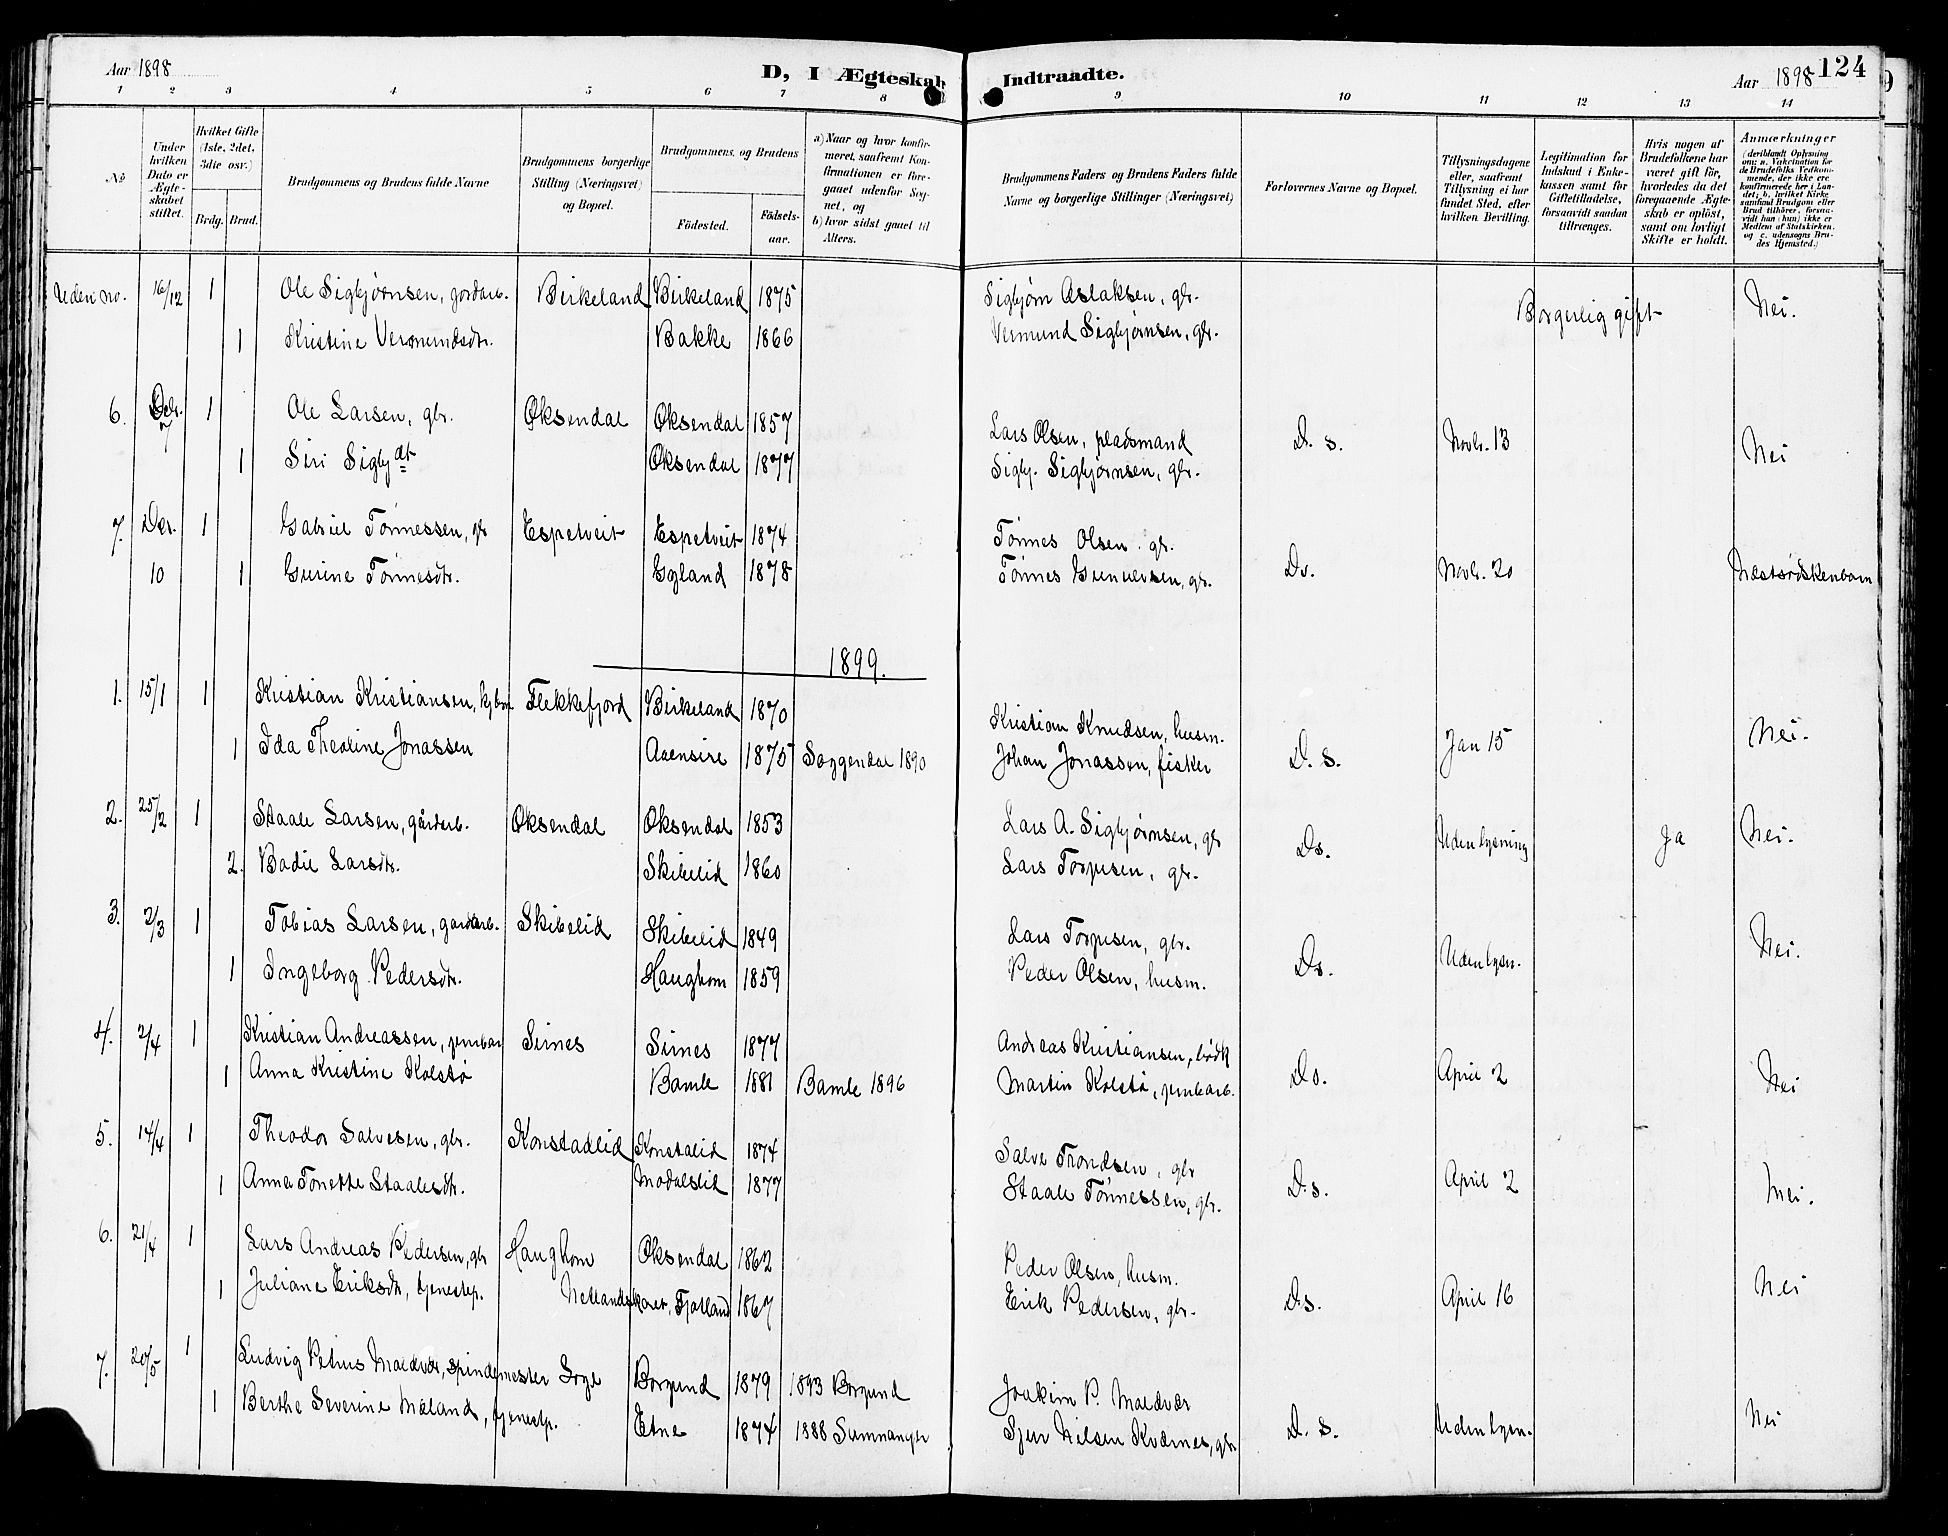 Aar 1898
D, I Ægteskab Indtraadte.
Aar 1898
124
1 2 3 4 5 6 7 8 9 10 11 12 13 14
No
Under hvilken Dato er Ægteskabet stiftet.
Hvilket Gifte (1ste, 2det, 3die osv.)
Brdg. Brud.
Brudgommens og Brudens fulde Navne
Brudgommens borgerlige Stilling (Næringsvei) og Bopæl.
Brudgommens, og Brudens
Födested.
Födselsaar.
a) Naar og hvor konfirmeret, saafremt Konfirmationen er foregaaet udenfor Sognet, og
b) hvor sidst gaaet til Alters.
Brudgommens Faders og Brudens Faders fulde Navne og borgerlige Stillinger (Næringsvei)
Forlovernes Navne og Bopæl.
Tillysningsdagene eller, saafremt Tillysning ei har fundet Sted, efter hvilken Bevilling.
Legitimation for Indskud i Enkekassen samt for Giftetilladelse, forsaavidt saadan tiltrænges.
Hvis nogen af Brudefolkene har været gift för, hvorledes da det foregaaende Ægteskab er oplöst, samt om lovligt Skifte er holdt.
Anmærkninger
(deriblandt Oplysning om: a. Vakcination for de Brudefolks Vedkommende, der ikke ere konfirmerede her i Landet; b. hvilket Kirkesamfund Brudgom eller Brud tilhörer, forsaavidt han (hun) ikke er Medlem af Statskirken, og c. udensogns Brudes Hjemsted.)
Uden no. 16/12 1 Ole Sigbjørnsen, gardarb. Birkeland Birkeland 1875 Sigbjørn Aslaksen, gbr. Borgerlig gift Nei.
1 Kristine Vermundsdtr. Bakke 1866 Vermund Sigbjørnsen, gbr.
6. 7 1 Ole Larsen, gbr. Øksendal Øksendal 1857 Lars Olsen, pladsmand D. s. Novbr. 13 Nei
1 Siri Sigbj dt Øksendal 1877 Sigbj. Sigbjørnsen, gbr.
7. Der. 1 Gabriel Tønnessen, gbr Espetveit Espetveit 1874 Tønnes Olsen gbr.
10 1 Gurine Tønnesdtr. Egland 1878 Tønnes Gunuersen, gbr. Ds. Novbr. 20 Næstsødskenbarn
1899.
1. 15/1 1 Kristian Kristiansen, Flekkefjord Birkeland 1870 Kristian Knudsen, husm. D. S. Jan 15 Nei.
1 Ida Theoline Jonassen Aaensire 1875 Soggendal 1890 Johan Jonassen, fisker
2. 25/2 1 Staale Larsen, gårdarb. Øksendal Øksendal 1853 Lars A. Sigbjørnsen, gbr Ds. Uden lysning Ja Nei.
2. Bodil Larsdtr. Skibelid 1860 Lars Torjusen, gbr.
3. 2/3 1 Tobias Larsen, gardarb. Skibelid Skibelid 1849 Lars Torjusen, gbr. Ds. Uden lysn. Nei.
1 Ingeborg Pedersdtr. Haughom 1859 Peder Olsen, husm.
4. 2/4 1 Kristian Andreassen, jernbar Sirnes Sirnes 1877 Andreas Kristiansen, bødk Ds. April 2 Nei
1 Anna Kristine Kolstø Bamle 1881 Bamle 1896 Martin Kolstø, jernbarb.
5. 14/4 1 Theodor Salvesen, gbr. Konstadlid Konstalid 1874 Salve Trondsen, gbr D.s. April 2 Nei.
1 Anna Tonette Staalesdtr. Modalslid 1877 Staale Tønnessen, gbr.
6. 21/4 1 Lars Andreas Pedersen, gbr Haughom Øksendal 1862 Peder Olsen, husm. D.s. April 16 Nei
1 Juliane Eriksdtr, tjenestep. Netlandskaret, Fjotland 1867 Erik Pedersen, gbr.
7. 20/5 1 Ludvig Petrus Maldvær, spindemester Loge Borgund 1879 1893 Borgund Joakim P. Maldvær D. s. Uden lysn. Nei
1 Berthe Severine Mæland, tjenestp. Etne 1874 1888 Samnanger Sjur Nilsen Kvernes, gbr